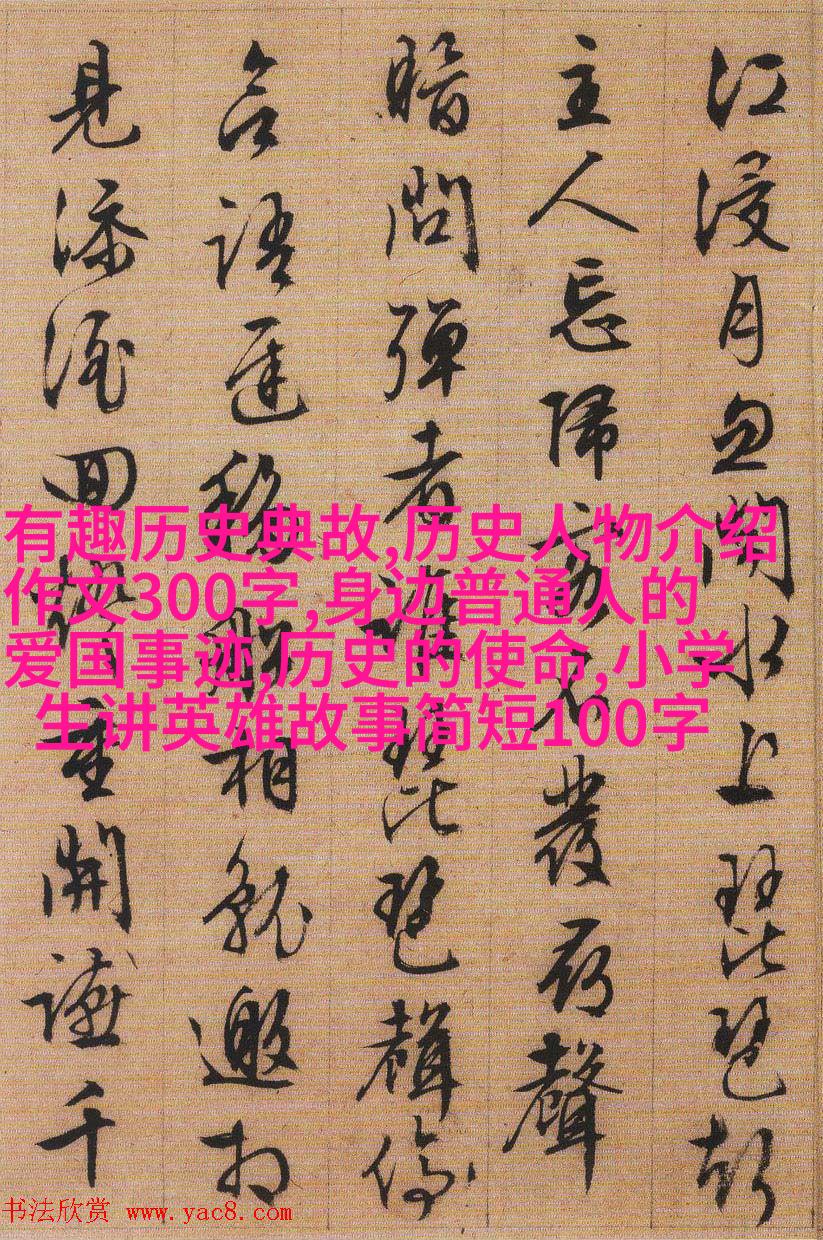 江浸月忽聞水上琵琶聲
主人忘歸客不發尋聲
暗問彈者誰琵琶聲停
語遲移船相就邀相
見添酒回燈重開讌千
有趣历史典故,历史人物介绍
作文300字,身边普通人的
爱国事迹,历史的使命,小学
生讲英雄故事简短100字
书法欣赏 www.yac8.com